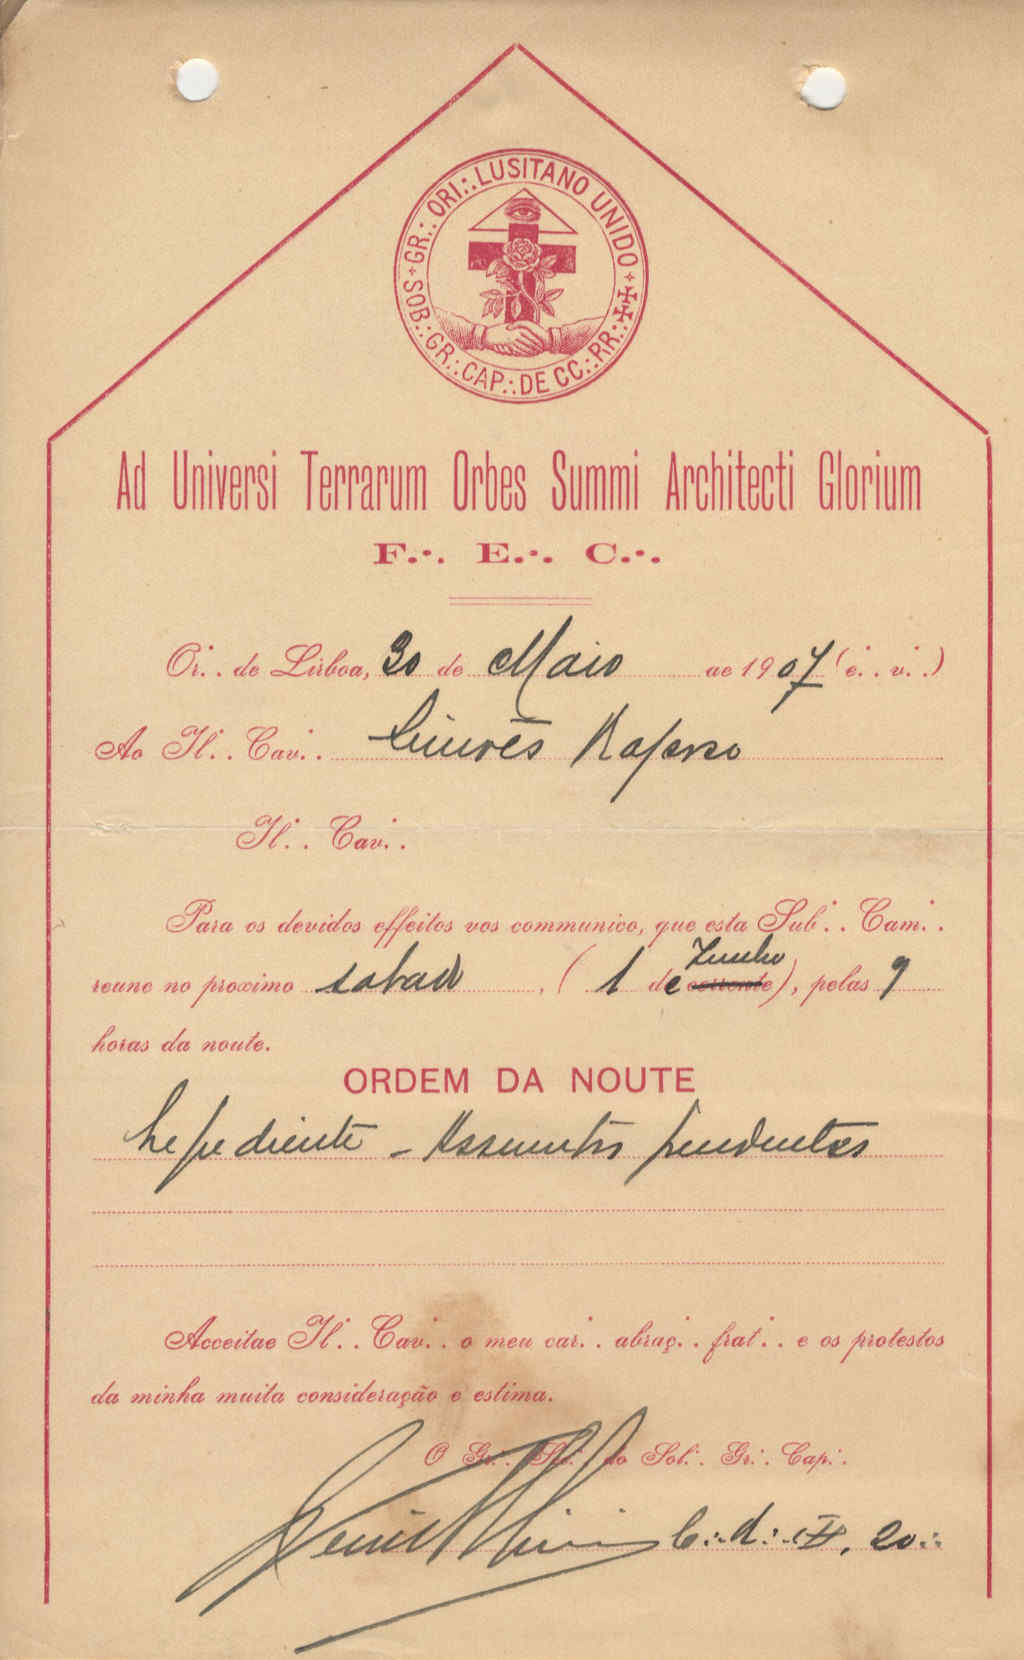 GR∴ ORI∴ LUSITANO UNIDO
SOB∴ GR∴ CAP∴ DE CC∴ RR∴
Ad Universi Terrarum Orbes Summi Architecti Glorium
F∴ E∴ C∴
Or∴ de Lisboa, 30 de Maio de 1907 (e∴ v∴)
Ao Il∴ Cav∴ Simões Raposo
Il∴ Cav∴
Para os devidos effeitos vos communico, que esta Sub∴ Cam∴
Junho
reune no proximo sabado, (1 de corrente), pelas 9
horas da noute.
ORDEM DA NOUTE
Expediente – Assumptos pendentes
Acceitae Il∴ Cav∴ o meu car∴ abraç∴ frat∴ e os protestos
da minha muita consideração e estima.
O Gr∴ do Sob∴ Gr∴ Cap∴
20∴